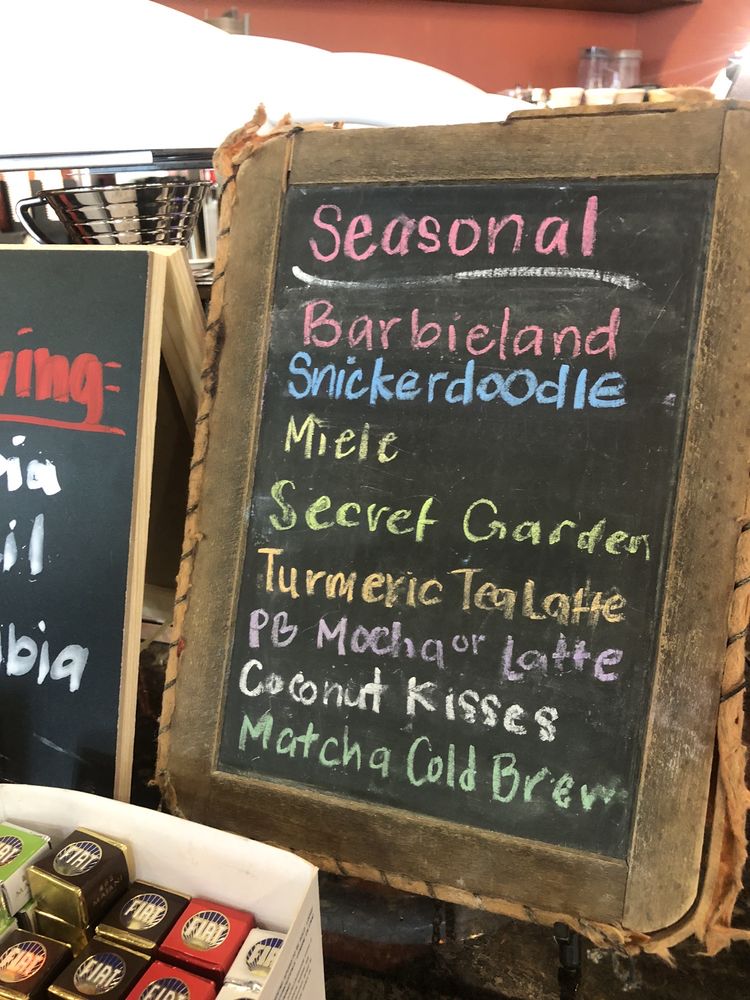 Seasonal
Barbieland
Snickerdoodle
Miele
Secret Garden
Turmeric Tea Latte
PB Mocha or Latte
Coconut Kisses
Matcha Cold Brew
FIAT
FIAT
FIAT
FIAT
FIAT
FIAT
FIAT